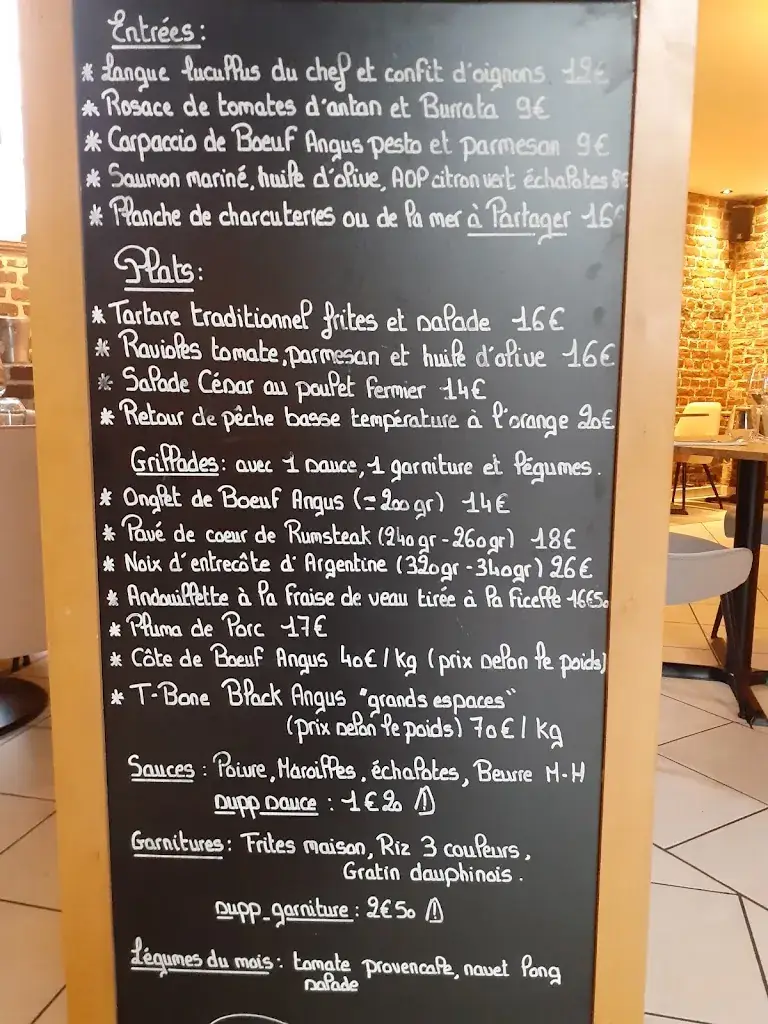 Entrées :
* Langue lucullus du chef et confit d'oignons 12€
* Rosace de tomates d'antan et Burrata 9€
* Carpaccio de Boeuf Angus pesto et parmesan 9€
* Saumon mariné, huile d'olive, AOP citron vert échalotes 8€
* Planche de charcuteries ou de la mer à Partager 16€
Plats :
* Tartare traditionnel frites et salade 16€
* Ravioles tomate, parmesan et huile d'olive 16€
* Salade César au poulet fermier 14€
* Retour de pêche basse température à l'orange 20€
Grillades : avec 1 sauce, 1 garniture et légumes.
* Onglet de Boeuf Angus (= 200gr) 14€
* Pavé de coeur de Rumsteak (240gr - 260gr) 18€
* Noix d'entrecôte d'Argentine (320gr - 340gr) 26€
* Andouillette à la fraise de veau tirée à la ficelle 16€50
* Pluma de Porc 17€
* Côte de Boeuf Angus 40€ / kg (prix selon le poids)
* T-Bone Black Angus "grands espaces"
(prix selon le poids) 70€ / kg
Sauces : Poivre, Maroilles, échalotes, Beurre M-H
supp sauce : 1€20 ⚠
Garnitures : Frites maison, Riz 3 couleurs,
Gratin dauphinois.
supp_garniture : 2€50 ⚠
Légumes du mois : tomate provencale, navet long
salade